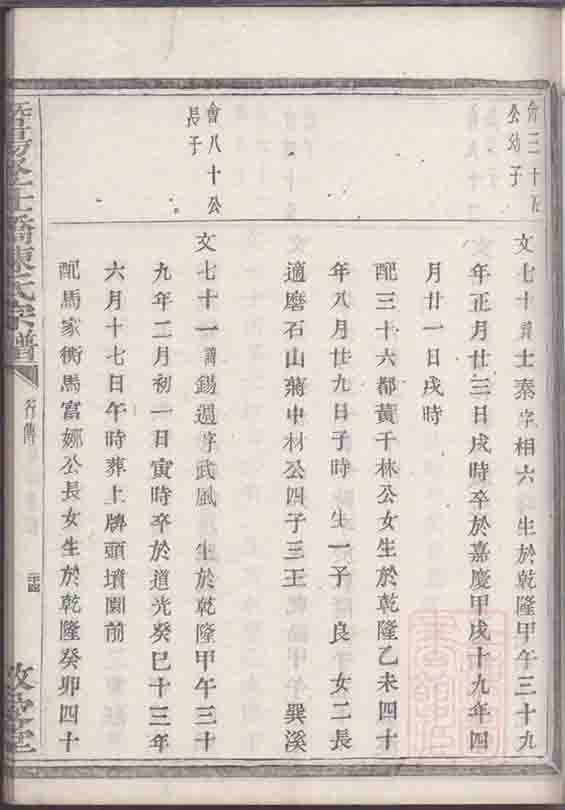 會三十五
公幼子
文七十 諱士泰字相六 生於乾隆甲午三十九
年正月廿三日戌時卒於嘉慶甲戌十九年四
月廿一日戌時
配三十六都黃千林公女生於乾隆乙未四十
年八月廿九日子時生一子 良 女二長
適磨石山蔣中材公四子三王 巽溪
會八十公
長子
文七十一諱錫週字武風 生於乾隆甲午三十
九年二月初一日寅時卒於道光癸巳十三年
六月十七日午時葬上牌頭墳園前
配馬家衖馬富娜公長女生於乾隆癸卯四十
橋陳氏宗譜
行傳
三十四
敦堂